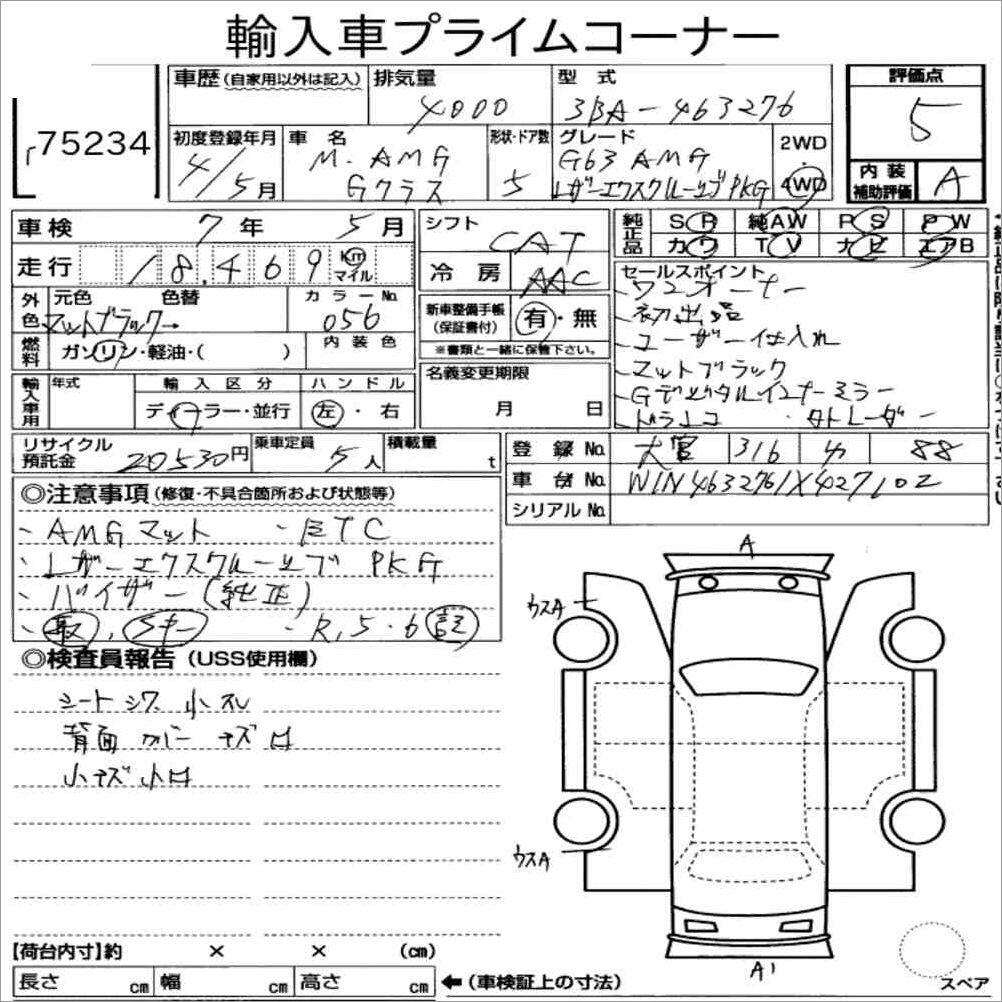 輸入車プライムコーナー
75234
車歴(自家用以外は記入) 排気量 4000 型式 3BA-463276 評価点 5
初度登録年月 4/5月 車名 M.AMG Gクラス 形状・ドア数 5 グレード G63 AMG レザーエクスクルーシブPKG 2WD・4WD
内装補助評価 A
車検 7年 5月 シフト CAT 純正品 SR 純AW PS PW
走行 18,469 Km マイル 冷房 AAC カワ TV ナビ エアB
外色 元色 マットブラック→ 色替 カラーNo. 056
新車整備手帳(保証書付) 有・無
※書類と一緒に保管下さい。
セールスポイント
-ワンオーナー
-初出品
-ユーザー仕入れ
-マットブラック
-Gデジタルインナーミラー
-ドラレコ ・レーダー
燃料 ガソリン・軽油・( ) 内装色
輸入車用 年式 輸入区分 ハンドル
ディーラー・並行 左・右
名義変更期限
月 日
リサイクル預託金 20530円 乗車定員 5人 積載量 t
登録No. 大宮 316 88
車台No. W1N4632761X427102
シリアルNo.
◎注意事項(修復・不具合箇所および状態等)
・AMGマット ・ETC
・レザーエクスクルーシブ PKG
・バイザー(純正)
・取,Sキー ・R,5・6 記
◎検査員報告(USS使用欄)
シートシワ 小スレ
背面カバーキズロ
小キズ小ロ
A
ウスA
ウスA
A1
スペア
【荷台内寸】約 × × (cm)
長さ cm 幅 cm 高さ cm ←(車検証上の寸法)